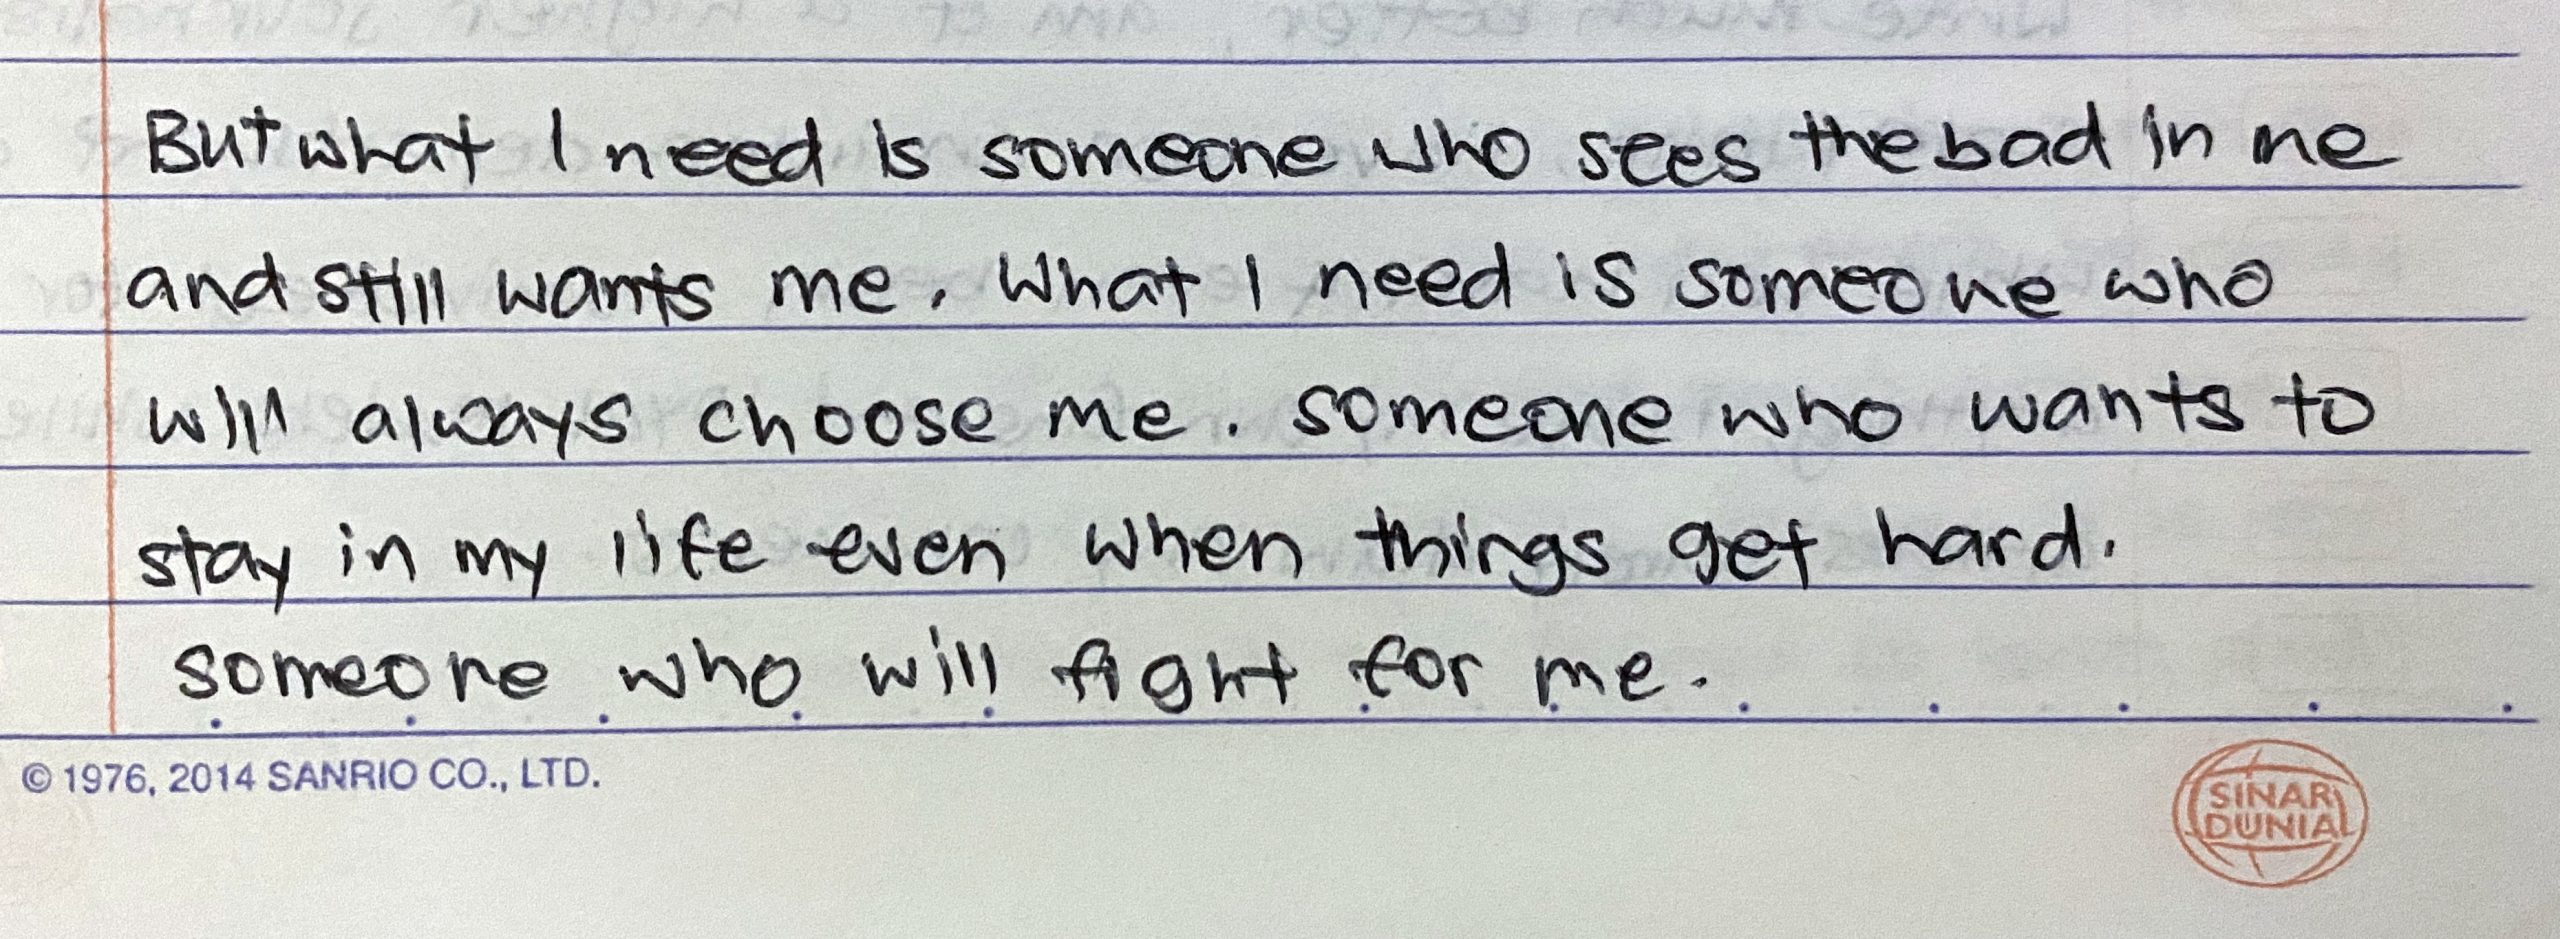 But what I need is someone who sees the bad in me
and still wants me. What I need is someone who
will always choose me. someone who wants to
stay in my life even when things get hard.
someone who will fight for me.
© 1976, 2014 SANRIO CO., LTD.
SINAR
DUNIA